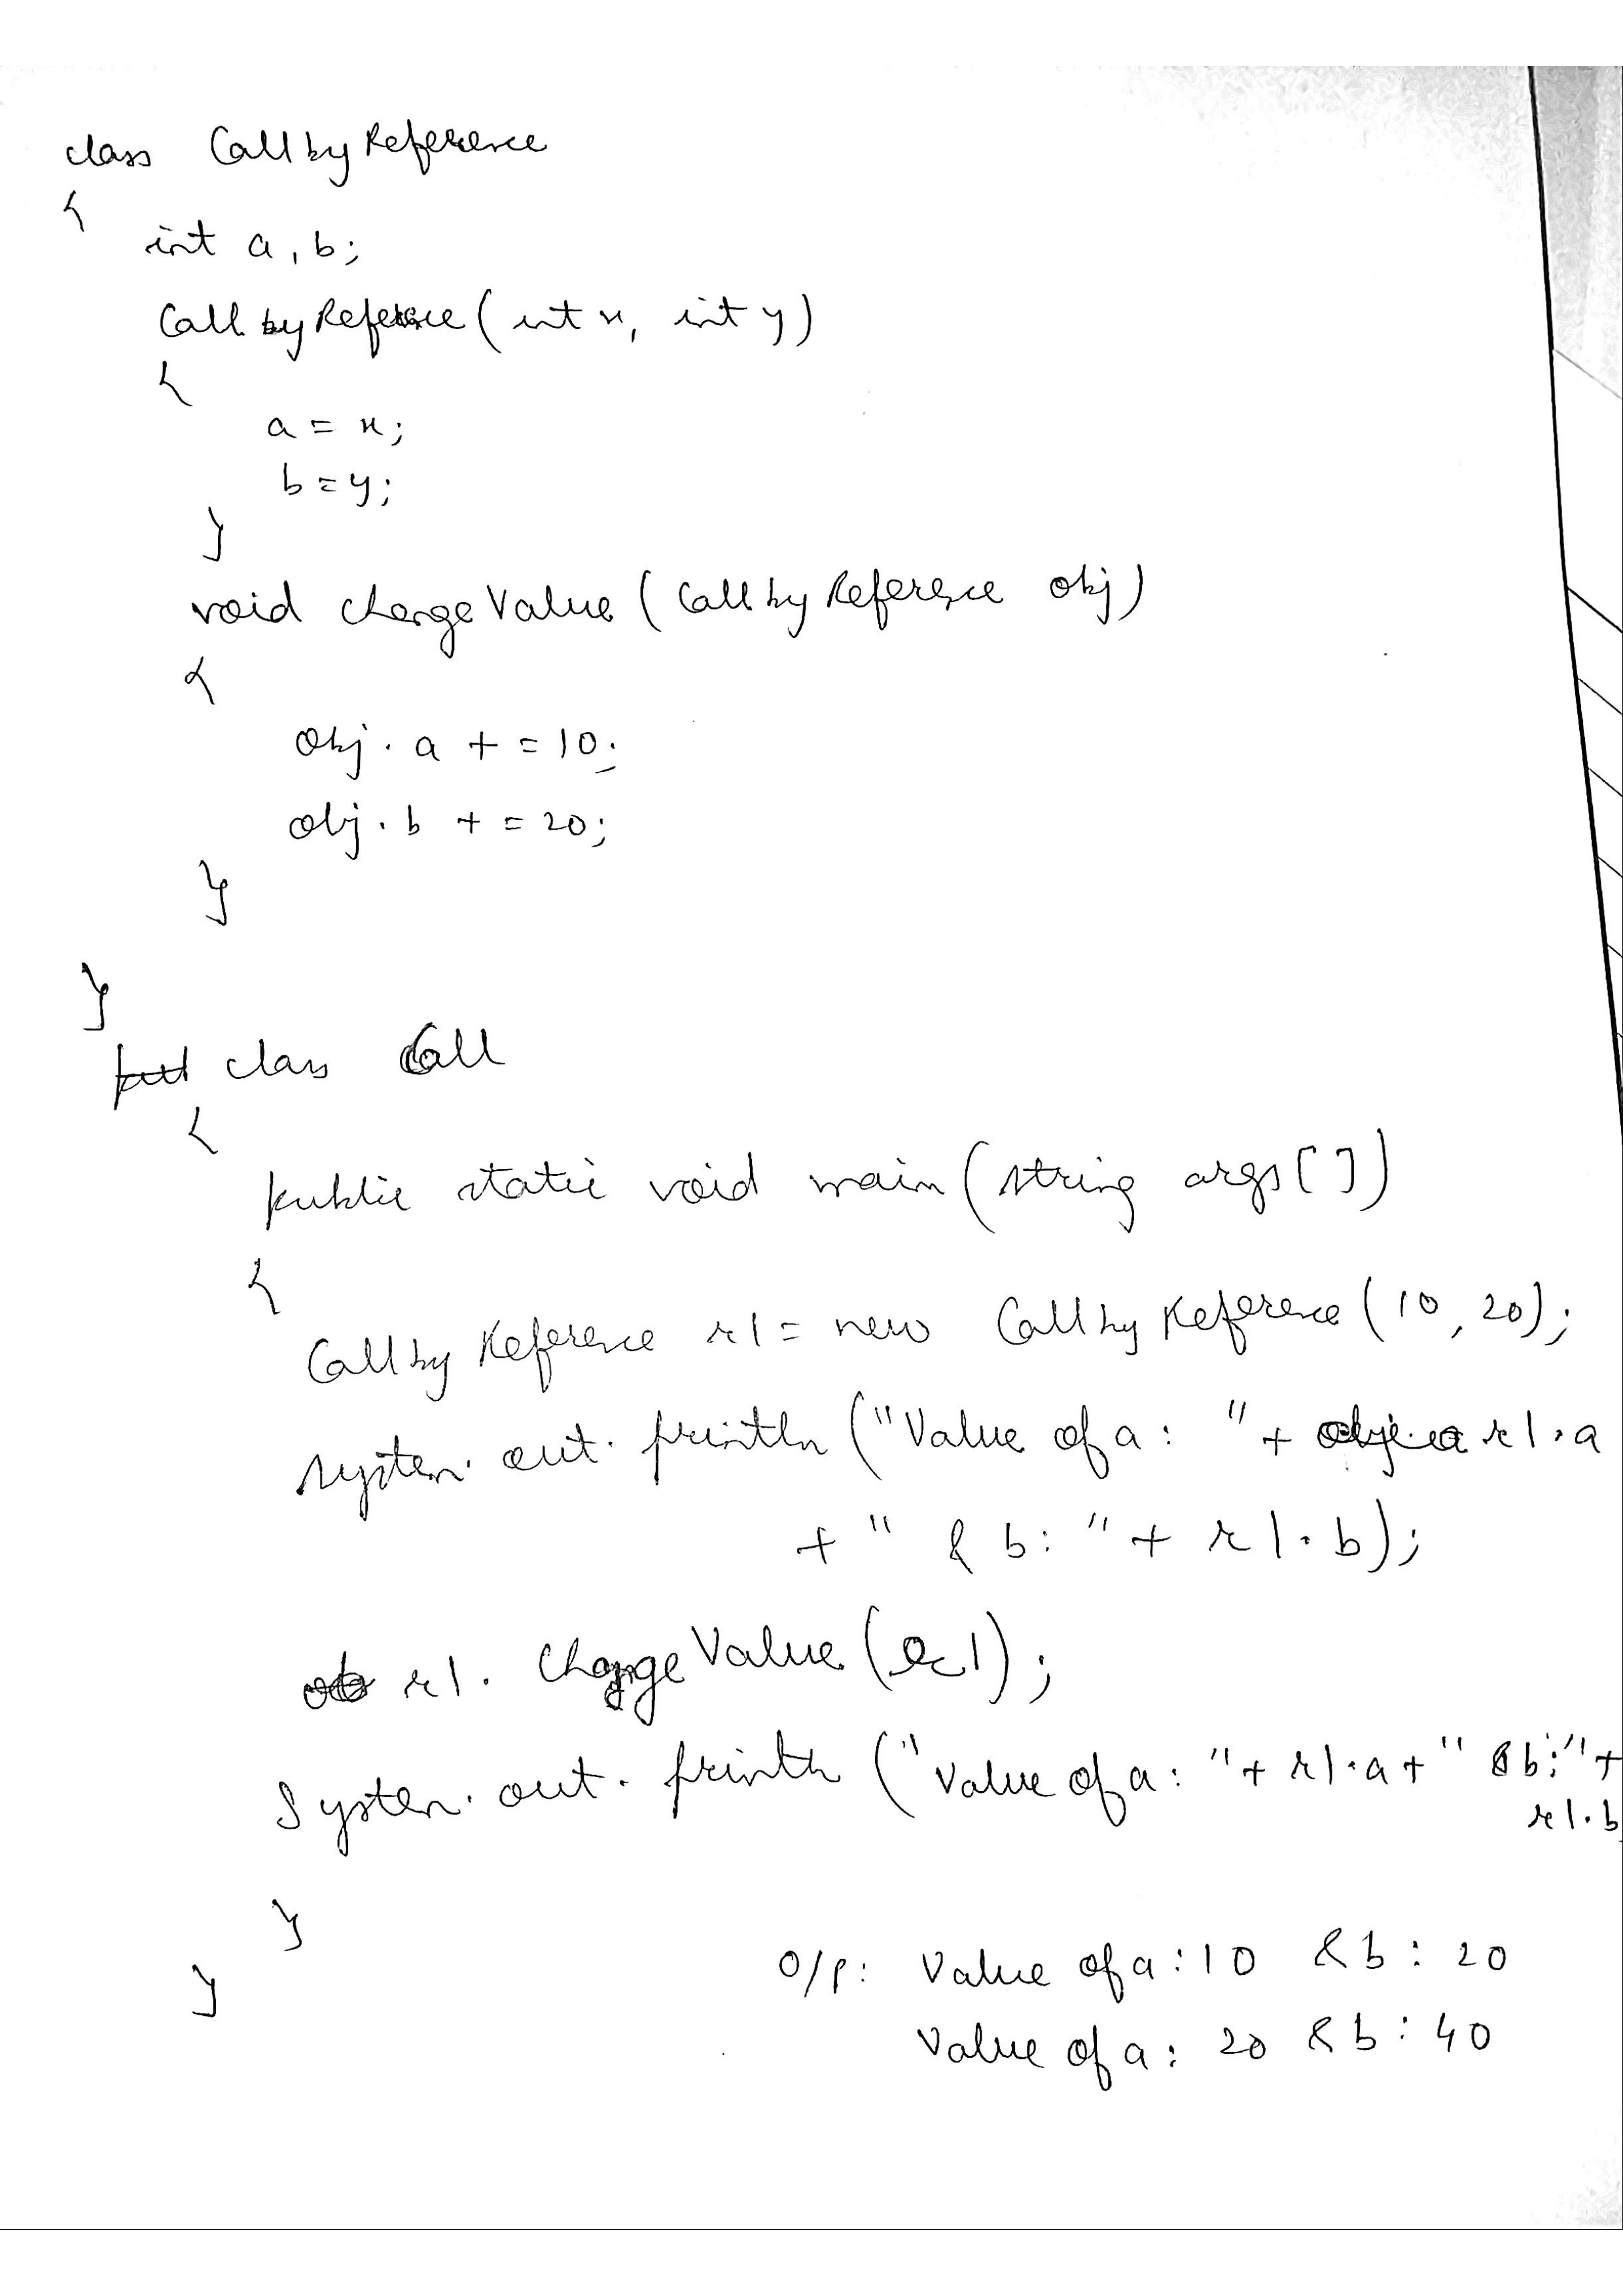 class CallbyReference
{
int a, b;
CallbyReference(int x, int y)
{
a = x;
b = y;
}
void changeValue(CallbyReference obj)
{
obj.a += 10;
obj.b += 20;
}
}
class Call
{
public static void main(string args[])
{
CallbyReference r1 = new CallbyReference(10, 20);
system.out.println("Value of a: " + r1.a
+ " & b: " + r1.b);
r1.changeValue(r1);
System.out.println("Value of a: " + r1.a + " & b:" +
r1.b
}
}
O/P: Value of a: 10 & b: 20
Value of a: 20 & b: 40